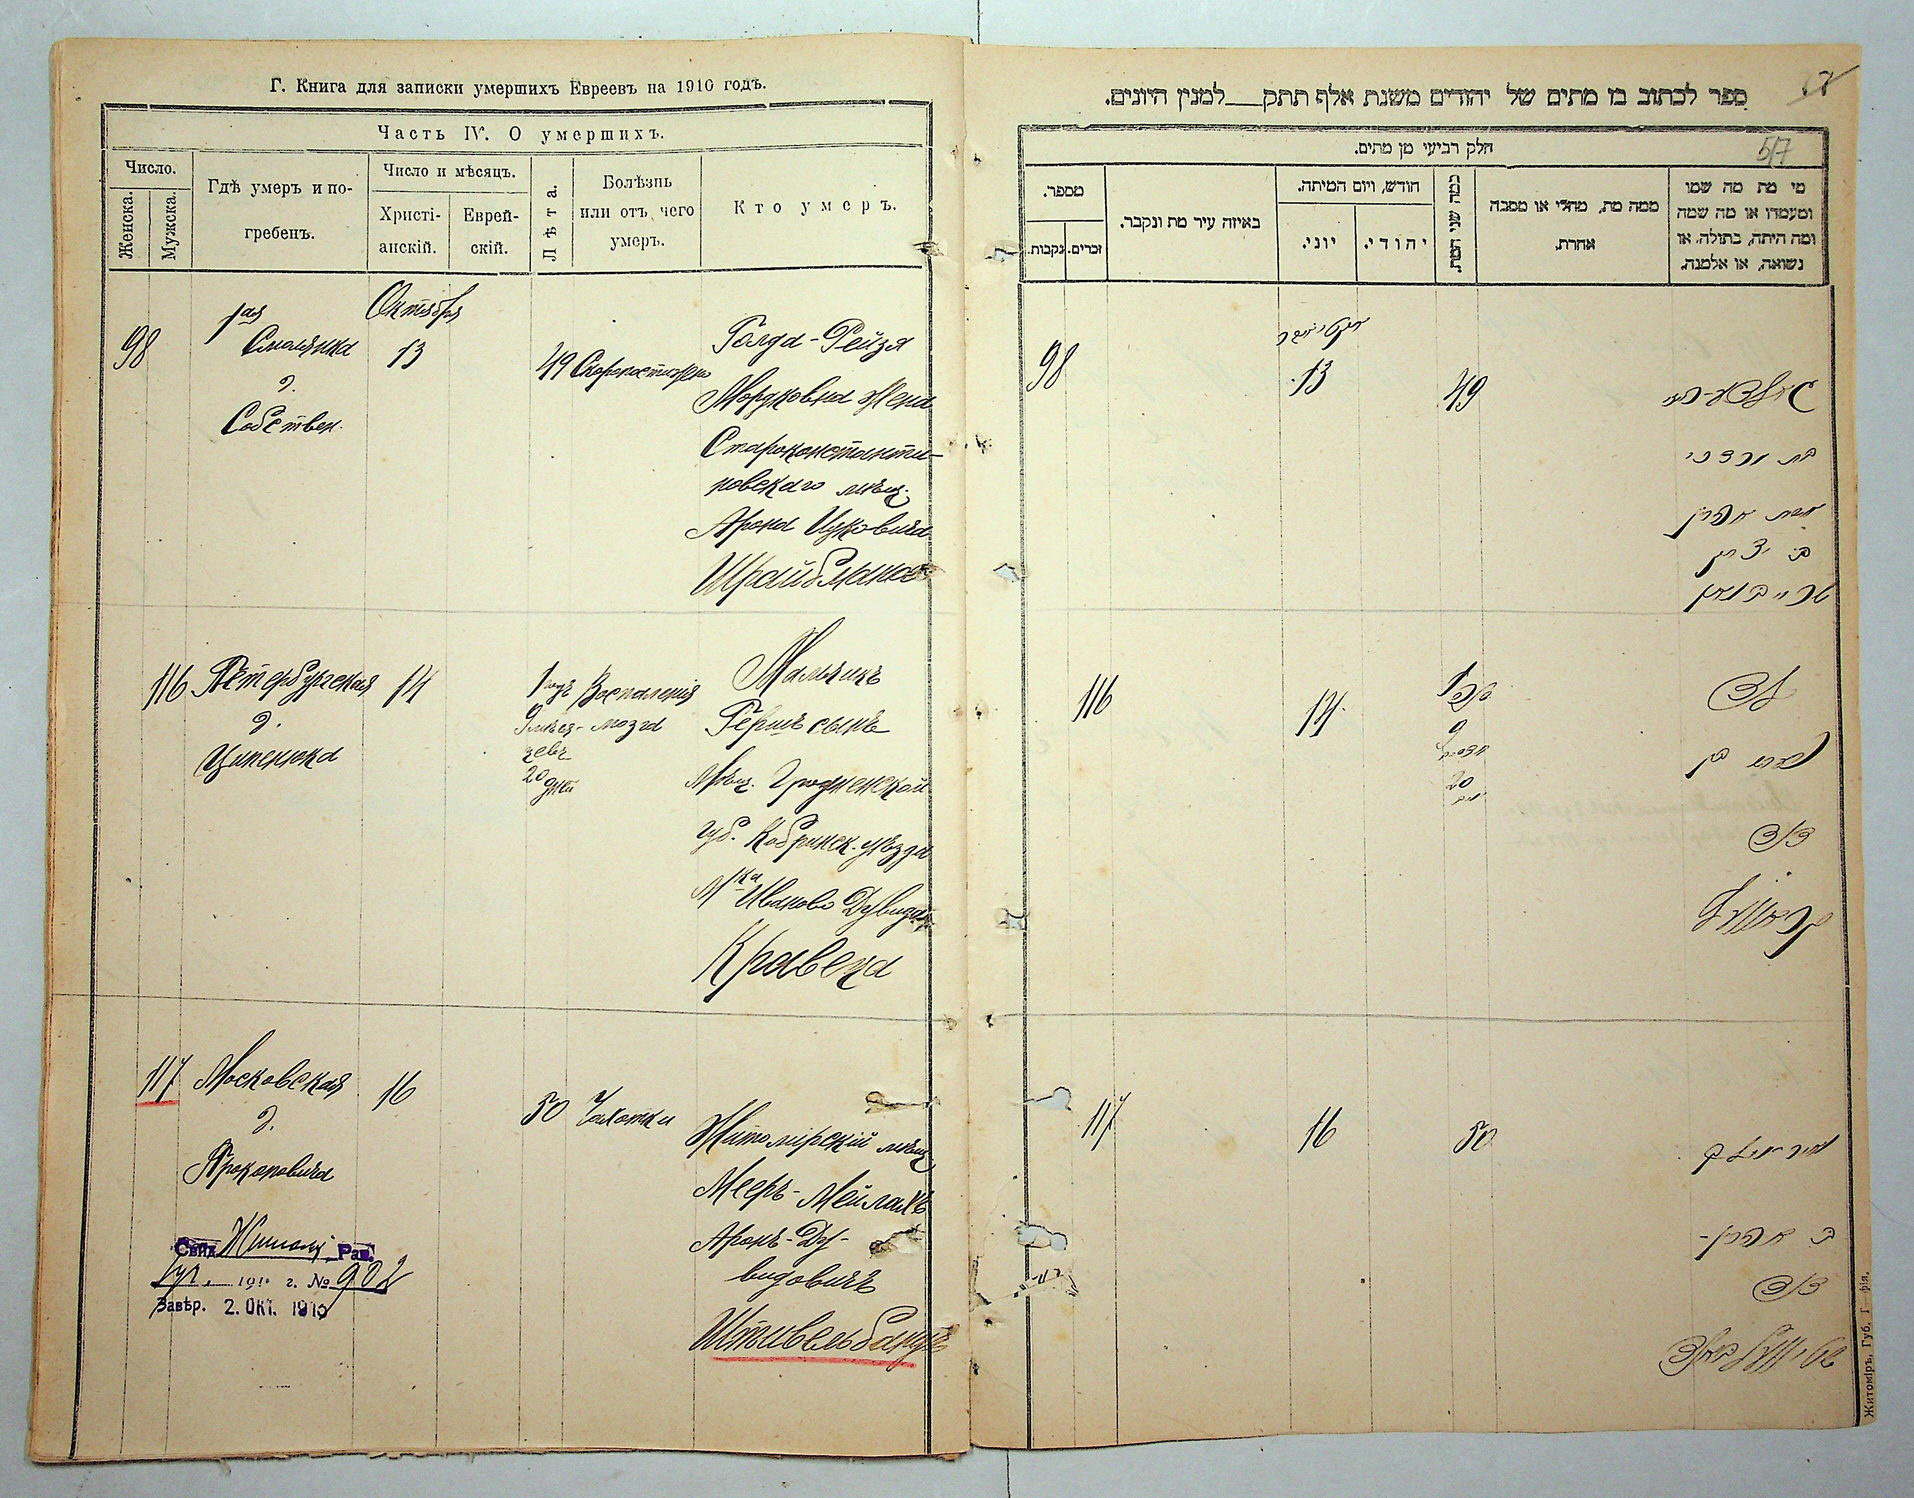 Г. Книга для записки умершихъ Евреевъ на 1910 годъ.
Часть IV. О умершихъ.
Число.
Женска.
Мужска.
Гдѣ умеръ и по-
гребенъ.
Число и мѣсяцъ.
Христі-
анскій.
Еврей-
скій.
Лѣта.
Болѣзнь
или отъ чего
умеръ.
Кто умеръ.
98
1ая
Смолянка
д.
Собствен.
Октября
13
49
Скоропостижно
Голда-Рейзя
Мордковна жена
Староконстанти-
новскаго мѣщ.
Арона Ицковича
Шрайбмана
116
Петербургская
д.
Ципенюка
14
1 годъ
9 мѣся-
цевъ
20 дней
Воспаленія
мозга
Мальчикъ
Гершъ сынъ
Мѣщ. Гродненской
губ. Кобринск. уѣзда
М-ка Иваново
Кравеца
117
Московская
д.
Прокоповича
16
50
Чахотки
Житомірскій мѣщ.
Мееръ-Мейлахъ
Аронъ-Ду-
видовичъ
Штивельбандъ
Свид. Житом. Рав.
1910 г. № 902
Завѣр. 2. ОКТ. 1910
ספר לכתוב בו מתים של יהודים משנת אלף תתק למנין היונים.
57
חלק רביעי מן מתים.
מספר.
נקבות.
זכרים.
באיזה עיר מת ונקבר.
חודש, ויום המיתה.
יוני.
יהודי.
כמה שני המת.
ממה מת, מחלי או מסבה
אחרת.
מי מת מה שמו
ומעמדו או מה שמה
ומה היתה, בתולה, או
נשואה, או אלמנה.
98
13
49
בת מרדכי
אשת אהרן
בן יצחק
שרייבמאן
116
14
1
9
20
ילד
הירש בן
דוד
קראוועץ
117
16
50
ב אהרן-
דוד
שטיוועלבאנד
Житоміръ, Губ. Т фія.